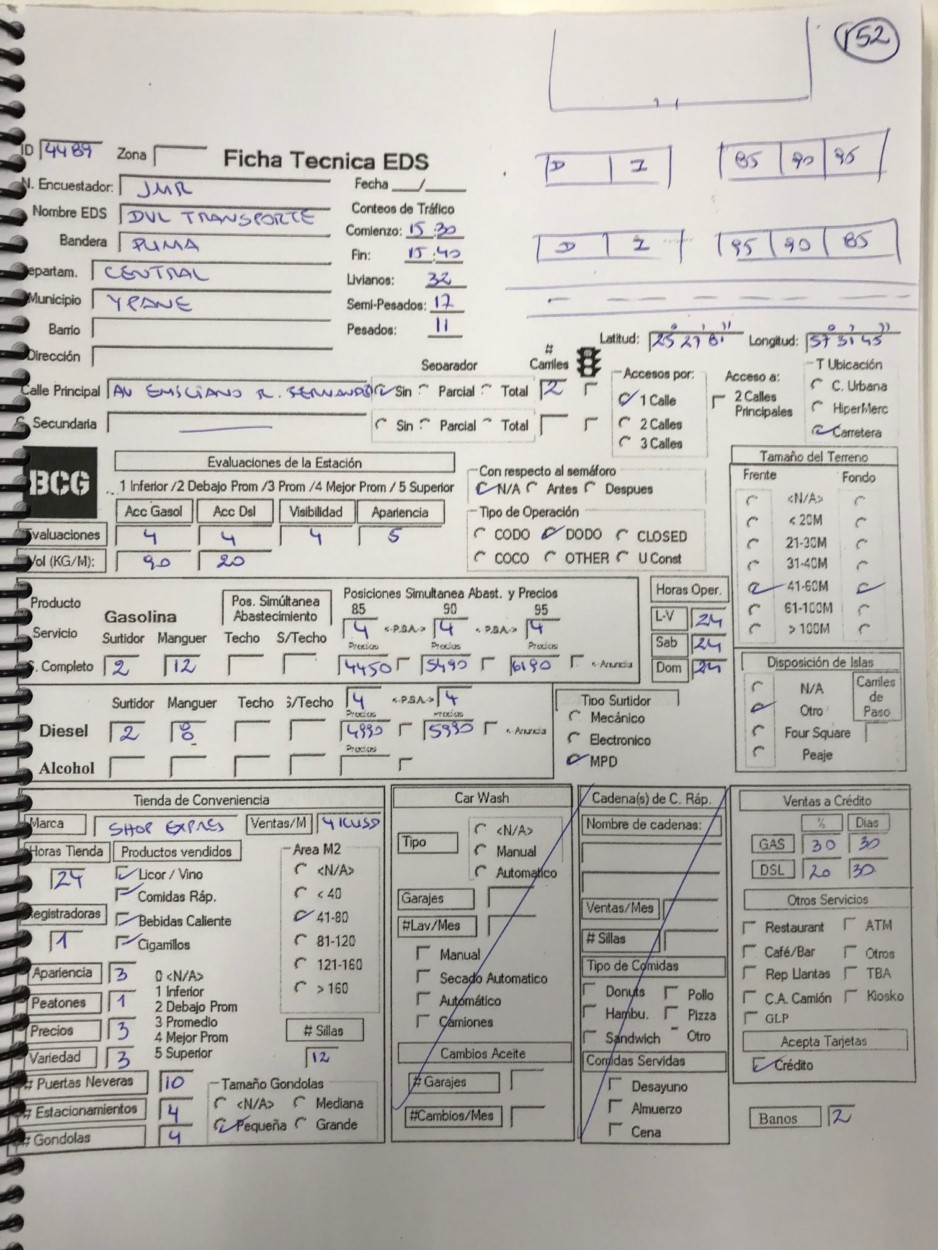 152
D I 85 90 95
D I 95 90 85
ID 4489 Zona Ficha Tecnica EDS
N. Encuestador: JMR Fecha __/__
Nombre EDS DVL TRANSPORTE Conteos de Tráfico
Bandera PUMA Comienzo: 15:30
Fin: 15:40
Departam. CENTRAL Livianos: 32
Municipio YPANE Semi-Pesados: 17
Barrio Pesados: 11
Dirección
Latitud: 25 27 81 Longitud: 57 31 45
Separador # Carriles
Calle Principal AV EMILIANO R. FERNANDEZ Sin Parcial Total 2
S. Secundaria Sin Parcial Total
Accesos por:
1 Calle
2 Calles
3 Calles
Acceso a:
2 Calles Principales
T Ubicación
C. Urbana
HiperMerc
Carretera
BCG
Evaluaciones de la Estación
1 Inferior /2 Debajo Prom /3 Prom /4 Mejor Prom / 5 Superior
Acc Gasol Acc Dsl Visibilidad Apariencia
Evaluaciones 4 4 4 5
Vol (KG/M): 90 20
Con respecto al semáforo
N/A Antes Despues
Tipo de Operación
CODO DODO CLOSED
COCO OTHER U Const
Tamaño del Terreno
Frente Fondo
<N/A>
< 20M
21-30M
31-40M
41-60M
61-100M
> 100M
Producto Servicio
Gasolina
Pos. Simúltanea Abastecimiento
Posiciones Simultanea Abast. y Precios
85 90 95
4 <-P.S.A.-> 4 <-P.S.A.-> 4
Surtidor Manguer Techo S/Techo Precios Precios Precios
S. Completo 2 12 4450 5490 6190 <-Anuncia
Horas Oper.
L-V 24
Sab 24
Dom 24
Surtidor Manguer Techo S/Techo 4 <-P.S.A.-> 4
Precios Precios
Diesel 2 8 4990 5990 <-Anuncia
Precios
Alcohol
Tipo Surtidor
Mecánico
Electronico
MPD
Disposición de Islas
N/A
Otro
Four Square
Peaje
Carriles de Paso
Tienda de Conveniencia
Marca SHOP EXPRES Ventas/M 4KUSD
Horas Tienda Productos vendidos
24
Licor / Vino
Comidas Ráp.
Registradoras Bebidas Caliente
1 Cigarrillos
Area M2
<N/A>
< 40
41-80
81-120
121-160
> 160
Apariencia 3 0 <N/A>
Peatones 1 1 Inferior
2 Debajo Prom
Precios 3 3 Promedio
4 Mejor Prom
Variedad 3 5 Superior
# Sillas
12
# Puertas Neveras 10
# Estacionamientos 4
# Gondolas 4
Tamaño Gondolas
<N/A> Mediana
Pequeña Grande
Car Wash
Tipo
<N/A>
Manual
Automatico
Garajes
#Lav/Mes
Manual
Secado Automatico
Automático
Camiones
Cambios Aceite
# Garajes
#Cambios/Mes
Cadena(s) de C. Ráp.
Nombre de cadenas:
Ventas/Mes
# Sillas
Tipo de Comidas
Donuts Pollo
Hambu. Pizza
Sandwich Otro
Comidas Servidas
Desayuno
Almuerzo
Cena
Ventas a Crédito
% Dias
GAS 30 30
DSL 20 30
Otros Servicios
Restaurant ATM
Café/Bar Otros
Rep Llantas TBA
C.A. Camión Kiosko
GLP
Acepta Tarjetas
Crédito
Banos 2